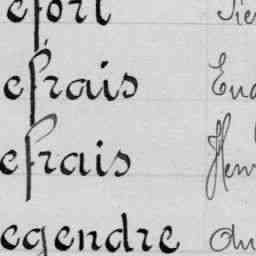 efort
efrais Eu
efrais Hen
egendre